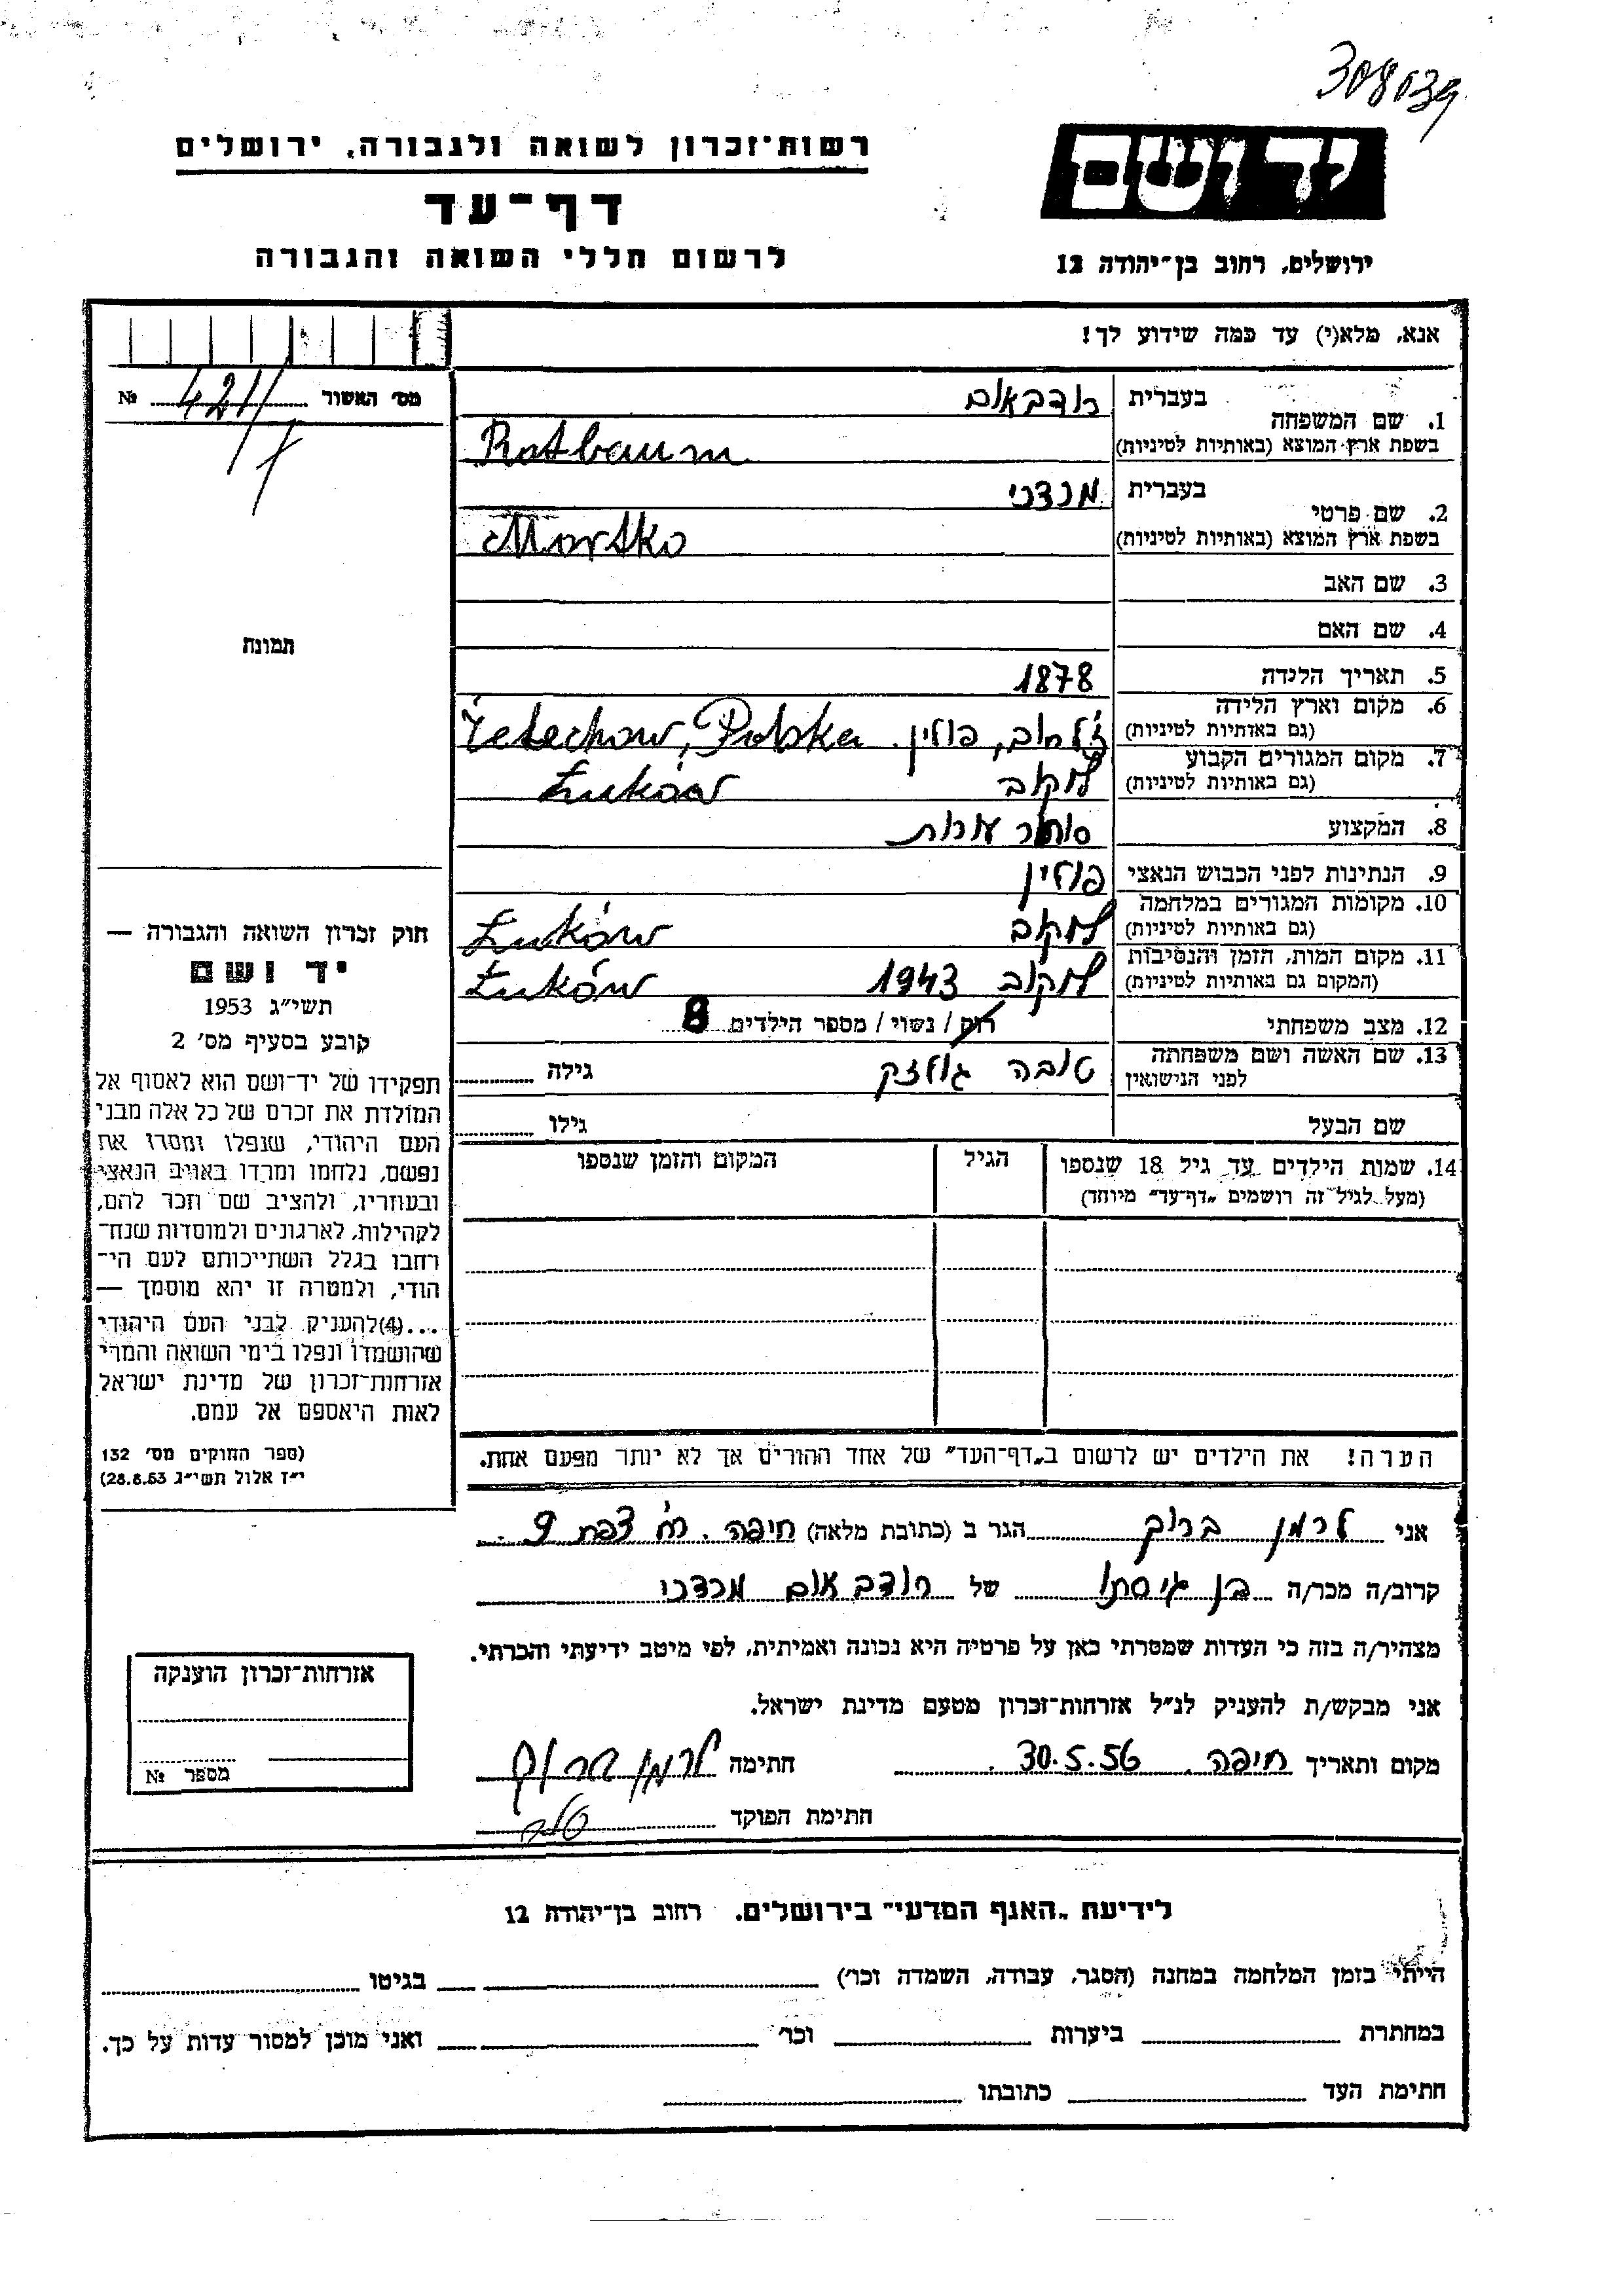 308039
רשות־זכרון לשואה ולגבורה, ירושלים
יד ושם
דף־עד
לרשום חללי השואה והגבורה
ירושלים, רחוב בן־יהודה 12
אנא, מלא(י) עד כמה שידוע לך!
מס׳ האשור 421 №
1. שם המשפחה
בעברית רודבאום
בשפת ארץ המוצא (באותיות לטיניות) Rotbaum
2. שם פרטי
בעברית מרדכי
בשפת ארץ המוצא (באותיות לטיניות) Mortko
3. שם האב
4. שם האם
תמונה
5. תאריך הלידה 1878
6. מקום וארץ הלידה
(גם באותיות לטיניות) ז׳לחוב, פולין. Żelechow, Polska
7. מקום המגורים הקבוע
(גם באותיות לטיניות) לוקוב Łuków
8. המקצוע סוחר עורות
9. הנתינות לפני הכבוש הנאצי פולין
10. מקומות המגורים במלחמה
(גם באותיות לטיניות) לוקוב Łuków
11. מקום המות, הזמן והנסיבות
(המקום גם באותיות לטיניות) לוקוב 1943 Łuków
12. מצב משפחתי רוק / נשוי / מספר הילדים 8
13. שם האשה ושם משפחתה
לפני הנישואין טובה גולזק גילה
שם הבעל גילו
14. שמות הילדים עד גיל 18 שנספו הגיל המקום והזמן שנספו
(מעל לגיל זה רושמים „דף־עד״ מיוחד)
הערה! את הילדים יש לרשום ב„דף־העד״ של אחד ההורים אך לא יותר מפעם אחת.
חוק זכרון השואה והגבורה —
יד ושם
תשי״ג 1953
קובע בסעיף מס׳ 2
תפקידו של יד־ושם הוא לאסוף אל
המולדת את זכרם של כל אלה מבני
העם היהודי, שנפלו ומסרו את
נפשם, נלחמו ומרדו באויב הנאצי
ובעוזריו, ולהציב שם וזכר להם,
לקהילות, לארגונים ולמוסדות שנח־
רבו בגלל השתייכותם לעם הי־
הודי, ולמטרה זו יהא מוסמך —
...(4) להעניק לבני העם היהודי
שהושמדו ונפלו בימי השואה והמרי
אזרחות־זכרון של מדינת ישראל
לאות היאספם אל עמם.
(ספר החוקים מס׳ 132
י״ז אלול תשי״ג 28.8.53)
אני לרמן ברוך הגר ב (כתובת מלאה) חיפה. רח׳ צפת 9.
קרוב/ה מכר/ה בן גיסתו של רודבאום מרדכי
מצהיר/ה בזה כי העדות שמסרתי כאן על פרטיה היא נכונה ואמיתית, לפי מיטב ידיעתי והכרתי.
אני מבקש/ת להעניק לנ״ל אזרחות־זכרון מטעם מדינת ישראל.
מקום ותאריך חיפה. 30.5.56. חתימה לרמן ברוך
חתימת הפוקד
אזרחות־זכרון הוענקה
מספר №
לידיעת „האגף המדעי״ בירושלים. רחוב בן־יהודה 12
הייתי בזמן המלחמה במחנה (הסגר, עבודה, השמדה וכו׳) בגיטו
במחתרת ביערות וכו׳ ואני מוכן למסור עדות על כך.
חתימת העד כתובתו